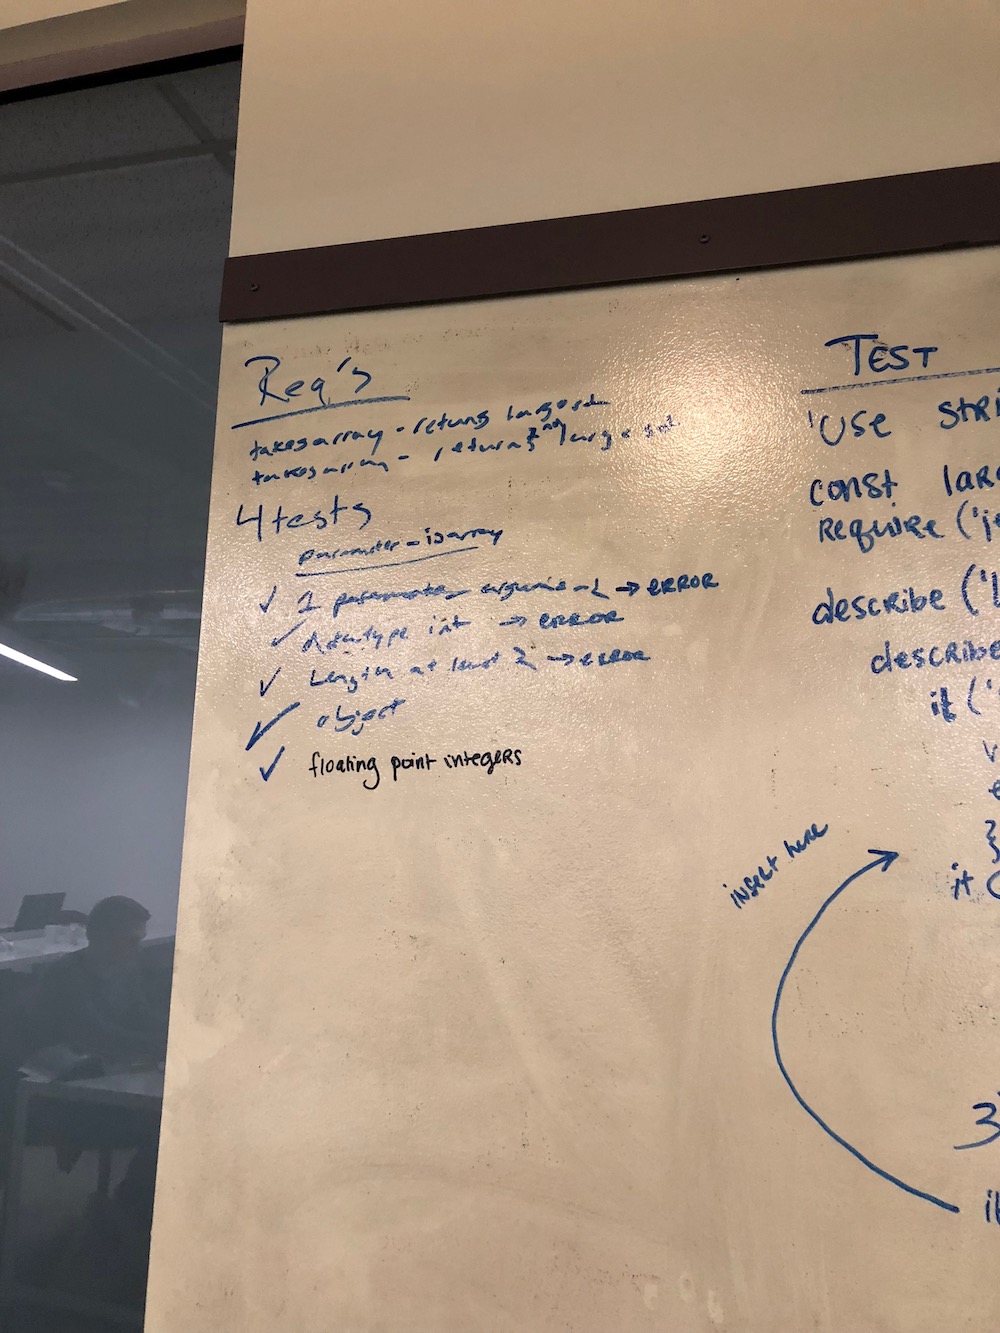 Req's
takes array - returns largest
takes array - returns 2nd largest
4 tests
parameter - is array
✓ 1 parameter → ERROR
✓ Datatype int → ERROR
✓ Length at least 2 → ERROR
✓ object
✓ floating point integers
TEST
'USE STRI
const lar
REquiRE ('j
describe ('l
describe
it ('
v
e
}
it (
insert here
3
it